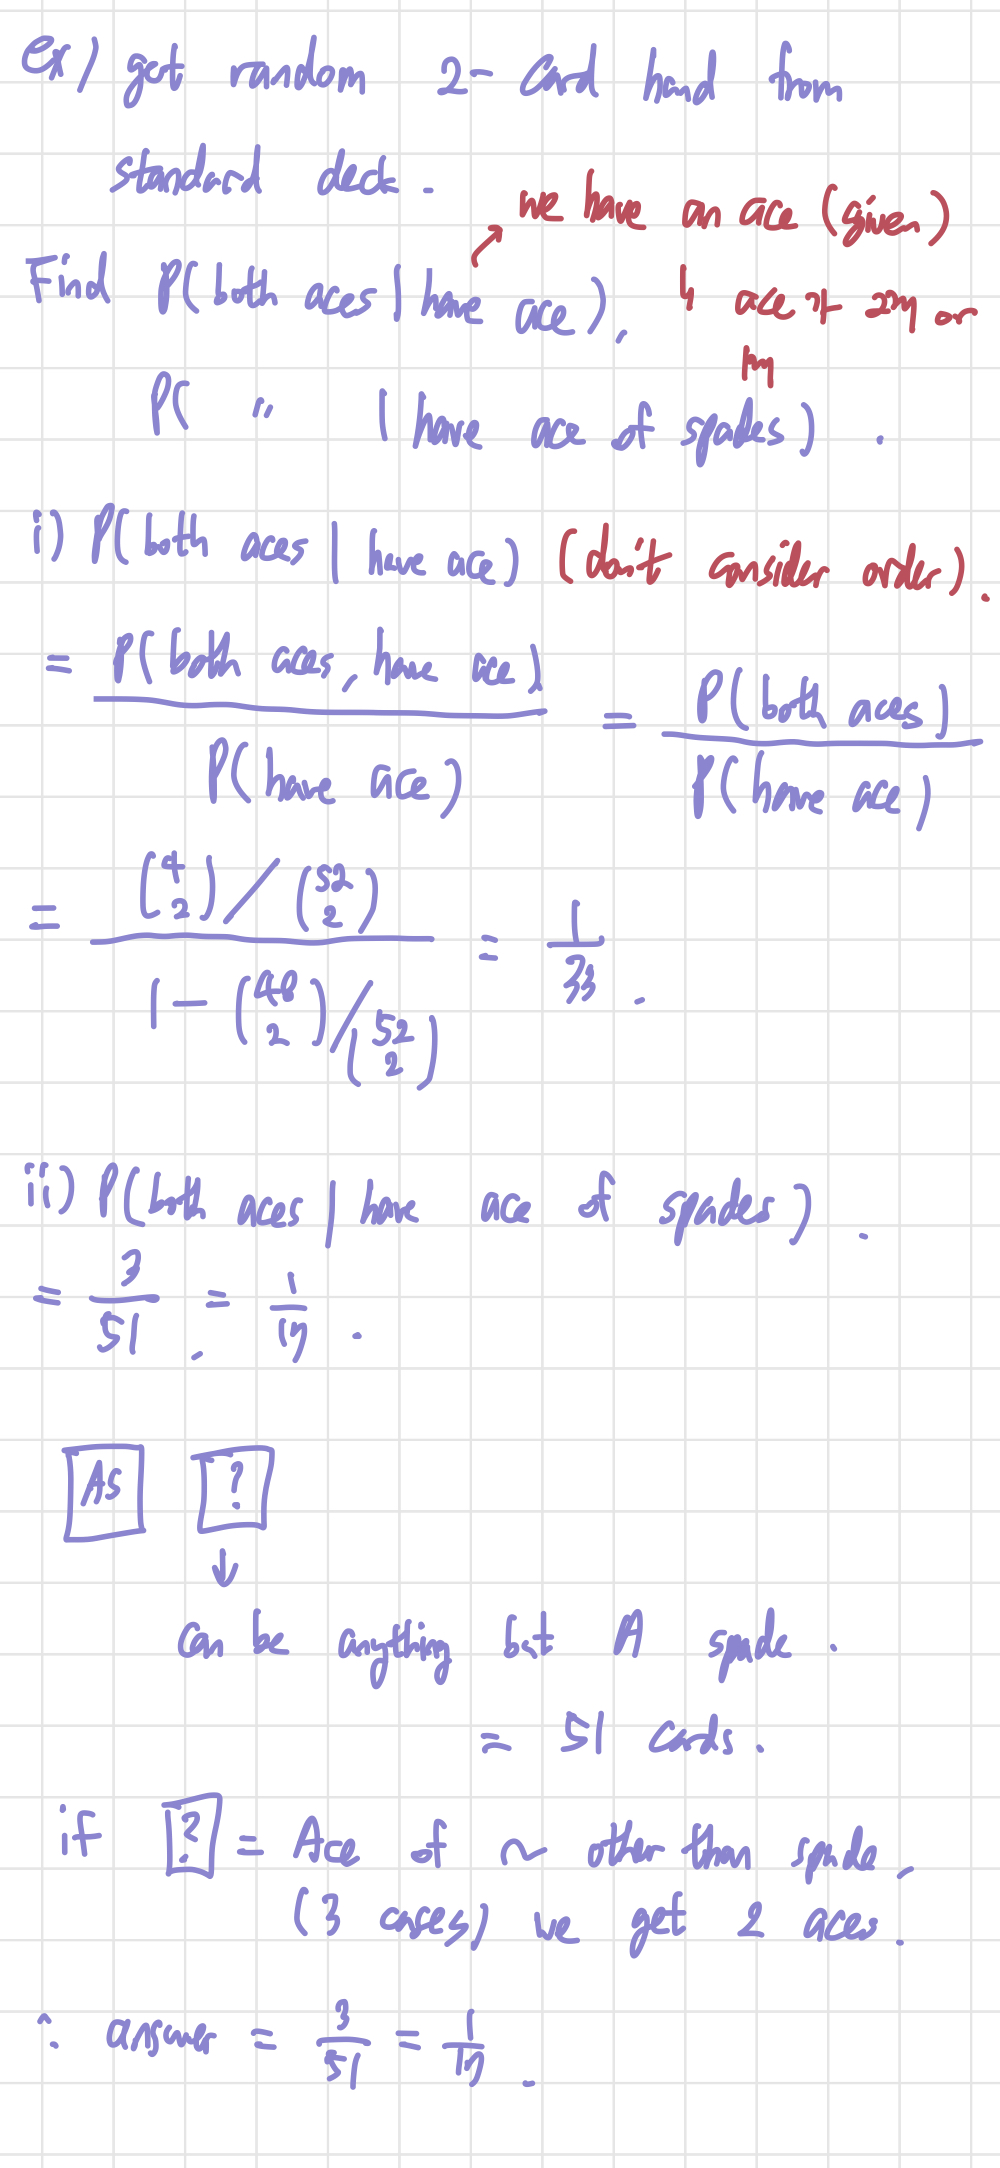 ex) get random 2- card hand from
standard deck.
we have an ace (given)
Find P(both aces | have ace),
ace 가 2개 or
1개
P( " | have ace of spades).
i) P(both aces | have ace) (don't consider order).
= P(both aces, have ace) / P(have ace) = P(both aces) / P(have ace)
= (4 2) / (52 2) / 1 - (48 2) / (52 2) = 1/33.
ii) P(both aces | have ace of spades).
= 3/51. = 1/17.
As ?
can be anything but A spade.
= 51 cards.
if ? = Ace of ~ other than spade,
(3 cases) we get 2 aces.
∴ answer = 3/51 = 1/17.